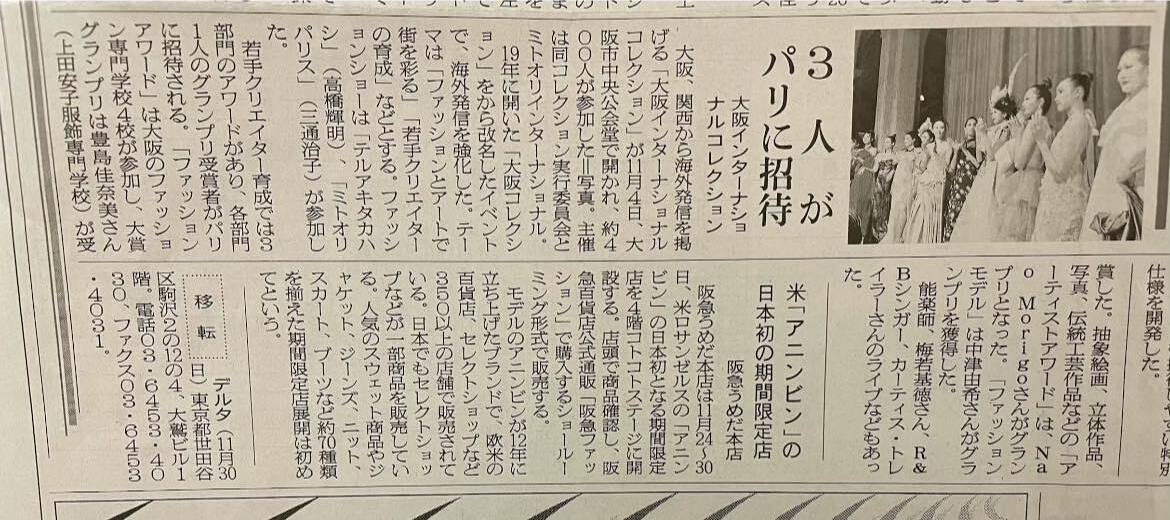 3人が
パリに招待
大阪インターナショ
ナルコレクション
大阪、関西から海外発信を掲
げる「大阪インターナショナル
コレクション」が11月4日、大
阪市中央公会堂で開かれ、約4
00人が参加した=写真。主催
は同コレクション実行委員会と
ミトオリインターナショナル。
19年に開いた「大阪コレクシ
ョン」をから改名したイベント
で、海外発信を強化した。テー
マは「ファッションとアートで
街を彩る」「若手クリエイター
の育成」などとする。ファッシ
ョンショーは「テルアキタカハ
シ」(高橋輝明)、「ミトオリ
パリス」(三通治子)が参加し
た。
若手クリエイター育成では3
部門のアワードがあり、各部門
1人のグランプリ受賞者がパリ
に招待される。「ファッション
アワード」は大阪のファッショ
ン専門学校4校が参加し、大賞
グランプリは豊島佳奈美さん
(上田安子服飾専門学校)が受
仕様を開発した。
賞した。抽象絵画、立体作品、
写真、伝統工芸作品などの「ア
ーティストアワード」は、Na
o Morigoさんがグラン
プリとなった。「ファッション
モデル」は中津由希さんがグラ
ンプリを獲得した。
能楽師、梅若基徳さん、R&
Bシンガー、カーティス・トレ
イラーさんのライブなどもあっ
た。
米「アニンビン」の
日本初の期間限定店
阪急うめだ本店
阪急うめだ本店は11月24~30
日、米ロサンゼルスの「アニン
ビン」の日本初となる期間限定
店を4階コトコトステージに開
設する。店頭で商品確認し、阪
急百貨店公式通販「阪急ファッ
ション」で購入するショールー
ミング形式で販売する。
モデルのアニンビンが12年に
立ち上げたブランドで、欧米の
百貨店、セレクトショップなど
350以上の店舗で販売されて
いる。日本でもセレクトショッ
プなどが一部商品を販売してい
る。人気のスウェット商品やジ
ャケット、ジーンズ、ニット、
スカート、ブーツなど約70種類
を揃えた期間限定店展開は初め
てという。
移転
デルタ(11月30
日)東京都世田谷
区駒沢2の12の4、大鷲ビル1
階。電話03・6453・40
30、ファクス03・6453
・4031。